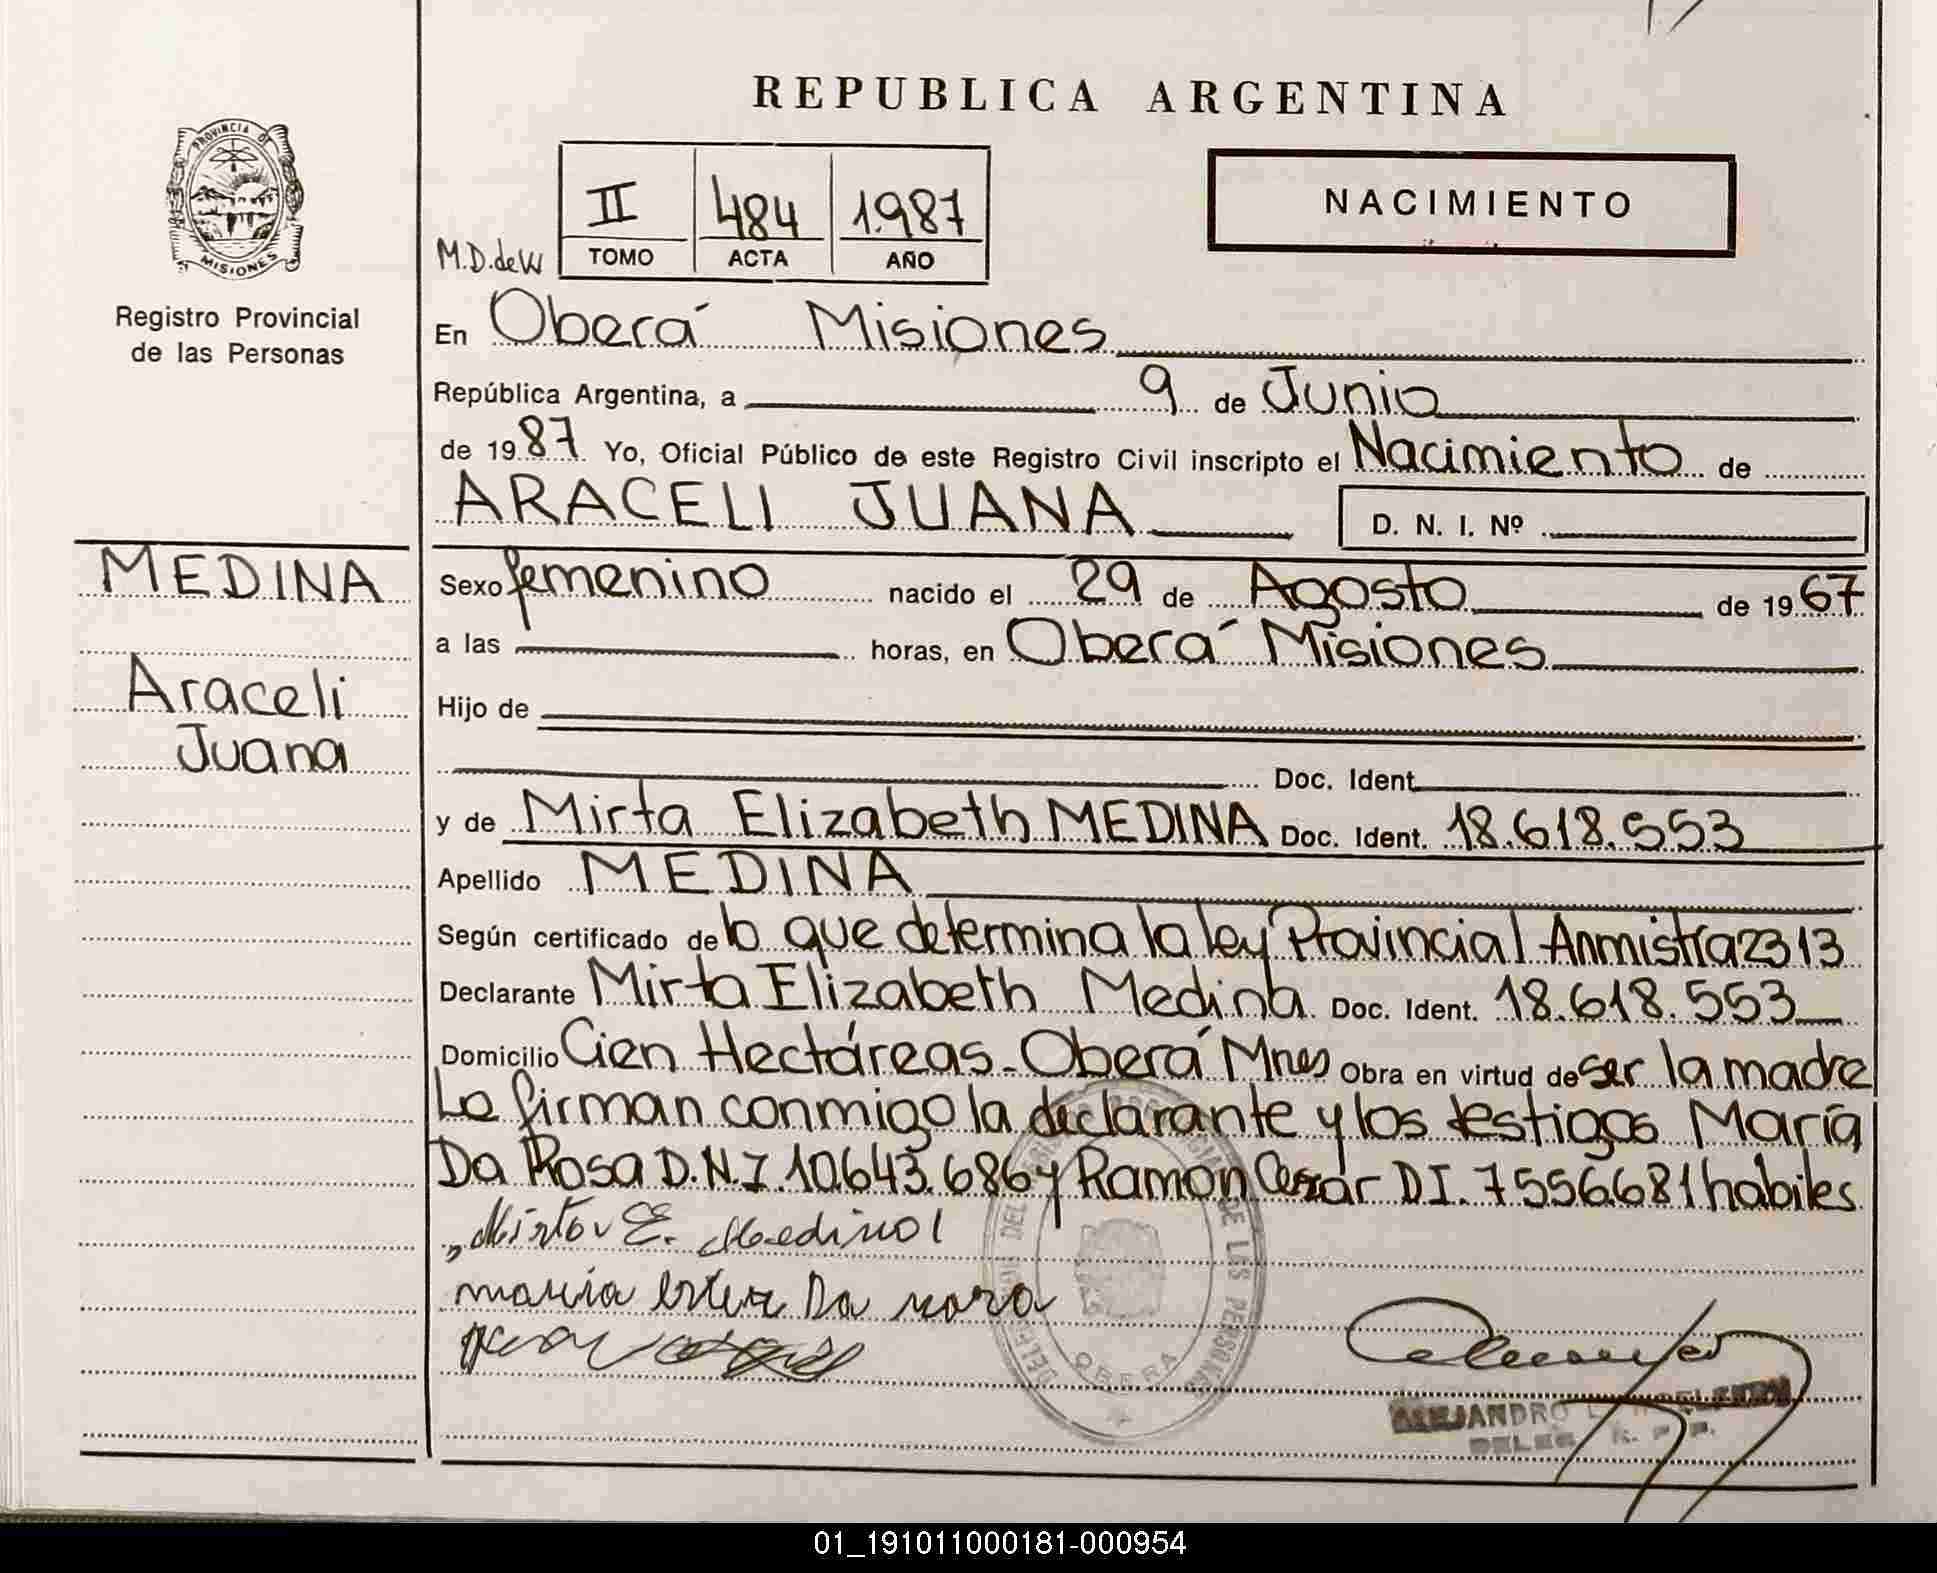 REPUBLICA ARGENTINA
PROVINCIA DE
MISIONES
Registro Provincial
de las Personas
NACIMIENTO
II 484 1.987
M.D. de W TOMO ACTA AÑO
En Oberá Misiones
República Argentina, a 9 de Junio
de 1987 Yo, Oficial Público de este Registro Civil inscripto el Nacimiento de
ARACELI JUANA D. N. I. Nº
MEDINA
Araceli
Juana
Sexo femenino nacido el 29 de Agosto de 1967
a las horas, en Oberá Misiones
Hijo de
Doc. Ident.
y de Mirta Elizabeth MEDINA Doc. Ident. 18.618.553
Apellido MEDINA
Según certificado de lo que determina la ley Provincial Anmistra 2313
Declarante Mirta Elizabeth Medina Doc. Ident. 18.618.553
Domicilio Cien Hectáreas - Oberá Mnes Obra en virtud de ser la madre
Le firman conmigo la declarante y los testigos María
Da Rosa D.N.I. 10.643.686 y Ramón Cesar D I. 7556681 habiles
Mirta E. Medina
maria ester Da rosa
OBERA
ALEJANDRO
DELEG. R. P. P.
01_191011000181-000954